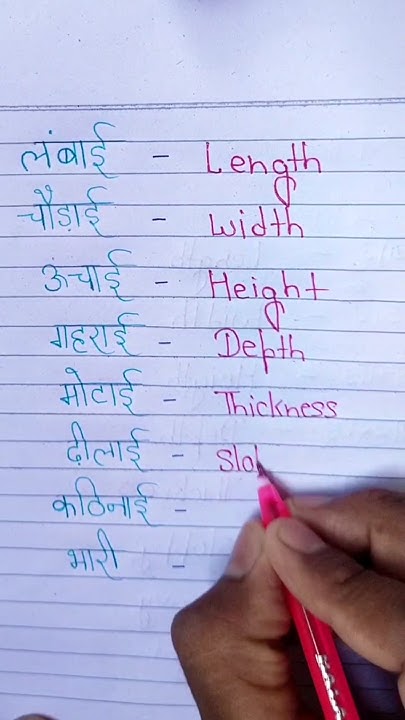 लंबाई - Length
चौड़ाई - Width
ऊंचाई - Height
गहराई - Depth
मोटाई - Thickness
ढ़ीलाई -
कठिनाई -
भारी -